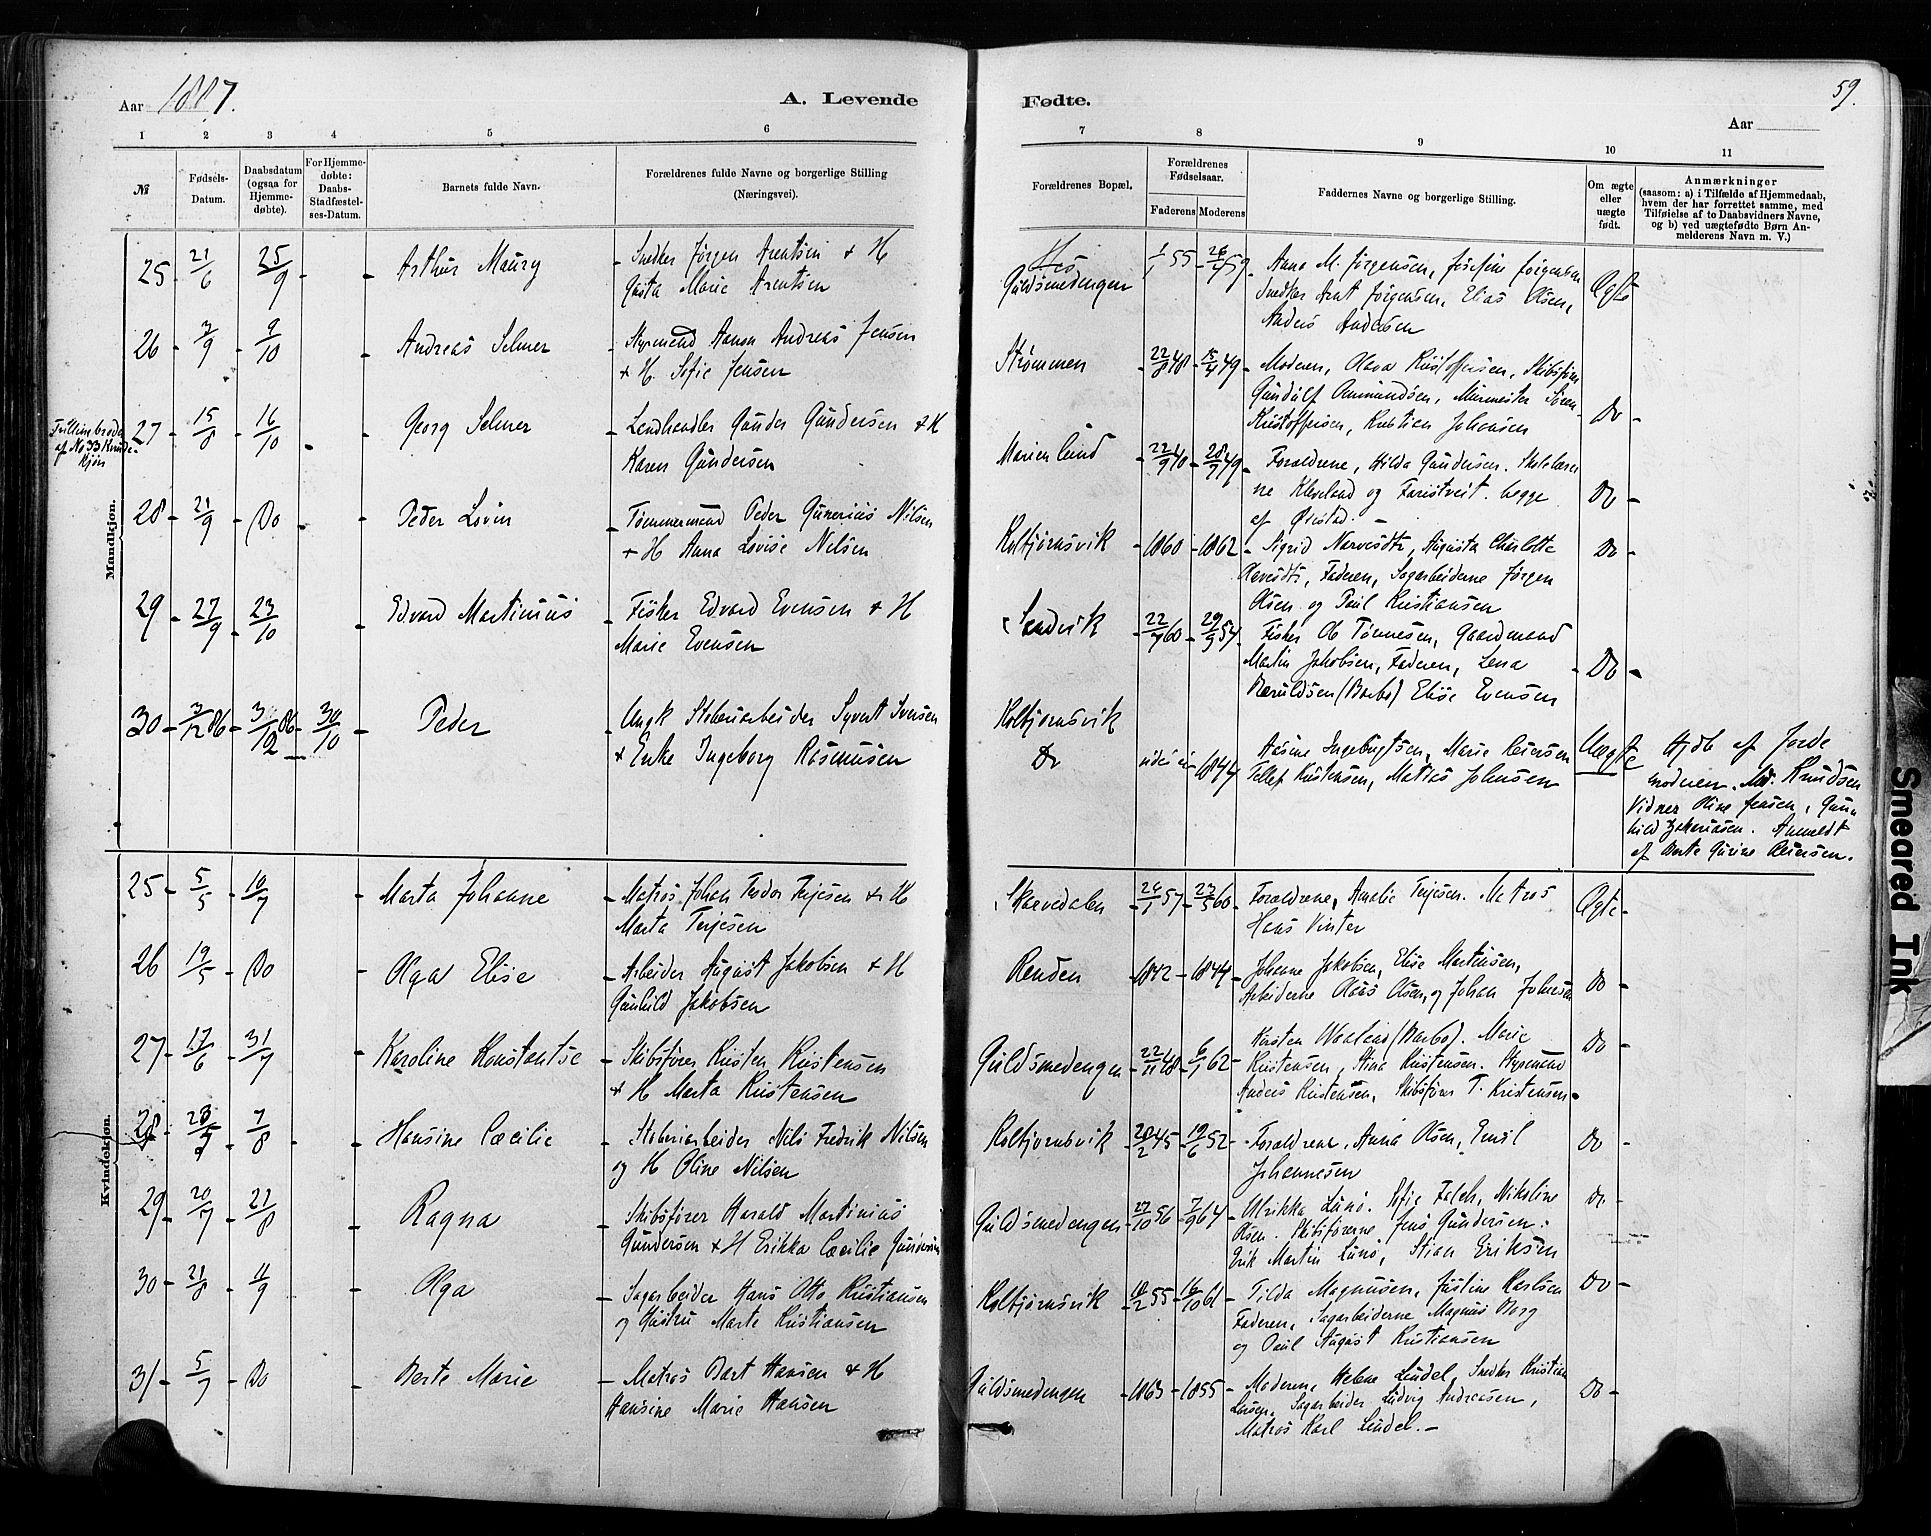 Aar 1887.
A. Levende
Fødte.
59.
Aar
1 2 3 4 5 6
7 8 9 10 11
№
Fødsels-Datum.
Daabsdatum (ogsaa for Hjemmedøbte).
For Hjemmedøbte: Daabs-Stadfæstelses-Datum.
Barnets fulde Navn.
Forældrenes fulde Navne og borgerlige Stilling (Næringsvei).
Forældrenes Bopæl.
Forældrenes Fødselsaar.
Faderens Moderens
Faddernes Navne og borgerlige Stilling.
Om ægte eller uægte født.
Anmærkninger
(saasom: a) i Tilfælde af Hjemmedaab, hvem der har forrettet samme, med Tilføielse af to Daabsvidners Navne, og b) ved uægtefødte Børn Anmelderens Navn m. V.)
Mandkjøn.
25 - 21/6 25/9 - - Arthur Maury - Snedker Jørgen Arentsen + H
Marie Arentsen
Guldsmedengen 1/1 55 - 26/4 59 - Anna M. Jørgensen, Josefine Jørgensen
Snedker Arnt Jørgensen, Elias Olsen, Ægte
Anders Andersen
26 - 3/9 - 9/10 - Andreas Selmer - Styrmand Aanon Andreas Jensen
+ H. Sofie Jensen
Strømmen - 22/8 48 - 15/4 49 - Moderen, Olava Kristoffersen, Skibsfører
Gundulf Ommundsen, Murmester Søren
Kristoffersen, Kristian Johansen Do -
af No 33 Kvinde-
kjøn
27 - 15/8 - 16/10 - Georg Selmer - Landhandler Gunder Gundersen + H
Karen Gundersen
Marienlund - 22/9 40 - 28/9 49 - Forældrene, Hilda Gundersen. Skolelærer
ne Kleveland og Faristveit. begge Do -
af Øiestad. -
28 - 21/9 - Do - - Peder Lovin - Tømmermand Peder Gunerius Nilsen
+ H Anna Lovise Nilsen
Kolbjørnsvik - 1860 - 1862 - Sigrid Narvesdtr, Augusta Charlotte Do -
Olavesdtr, Faderen, Sagarbeiderne Jørgen
Olsen og Paul Kristiansen
29 - 27/9 - 23/10 - Edvard Martinius - Fisker Edvard Evensen + H
Marie Evensen
Sandvik - 22/7 60 - 29/9 54 - Fisker Ole Tønnesen, Gaardmand
Martin Jakobsen, Faderen, Lena - Do -
Baruldsen (Barbo) Elise Evensen
30 - 3/12 86 - 3/12 86 - 30/10 - Peder - Ungk Støberiarbeider Syvert Svensen
+ Enke Ingeborg Rasmussen
Kolbjørnsvik
Do 1844 Aasine Ingebrigtsen, Marie
Tellef Kristensen, Matias Johnsen
Uægte Hjdb af Jorde
moderen. Knudsen
Vidner Oline Jensen, Gun
hild Zakariasen. Anmeldt
af Berte Gurine
Kvindekjøn.
25 - 5/5 - 10/7 - Marta Johanne - Matros Johan Teodor Terjesen + H
Marta Terjesen
Skarvedalen - 24/1 57 - 23/5 60 - Forældrene, Amalie Terjesen. Matros
Hans Vinter Ægte -
26 19/5 - Do - Olga Elise - Arbeider August Jakobsen + H
Gunhild Jakobsen
Renden - 1842 - 1844 - Johanne Jakobsen, Elise Martensen,
Arbeiderne Olaus Olsen, og Johan Johnsen Do -
27 - 17/6 - 31/7 - Karoline Konstantse - Skibsfører Kristen Kristensen
+ H Marta Kristensen
Guldsmedengen - 22/11 48 - 6/1 62 - Kirsten (Barbo). Marie
Kristensen, Stina Kristensen. Styrmand Do -
Anders Kristensen, Skibsfører T. Kristensen -
28 - 28/7 - 7/8 - - Hansine Cæcilie - Støberiarbeider Nils Fredrik Nilsen
og H Oline Nilsen
Kolbjørnsvik - 20/2 45 - 19/6 52 - Forældrene, Anna Olsen, Emil
Johannesen Do -
29 - 20/7 - 21/8 - Ragna - Skibsfører Harald Martinius
Gundersen + H Erikka Cæcilie Gundersen
Guldsmedengen - 27/10 56 - 7/9 64 - Ulrikka Lund. Sofie Falch, Nikoline Do -
Olsen. Skibsførerne Jens Gundersen.
Erik Martin Lund, Stian Eriksen
30 - 21/8 - 4/9 - Olga - Sagarbeider Hans Otto Kristiansen
og Hustru Marte Kristiansen
Kolbjørnsvik - 18/2 55 - 16/10 61 - Tilda Magnussen, Justine Karlsen Do -
Faderen, Sagarbeiderne Magnus Borg
og Paul August Kristiansen
31 - 5/7 - Do - Berte Marie - Matros Bart Hansen + H
Hansine Marie Hansen
Guldsmedengen - 1863 - 1855 - Moderen, Helene Lindel, Snedker Kristian
Larsen, Sagarbeider Ludvig Andreasen, Do -
Matros Karl Lindel. -
Smeared Ink